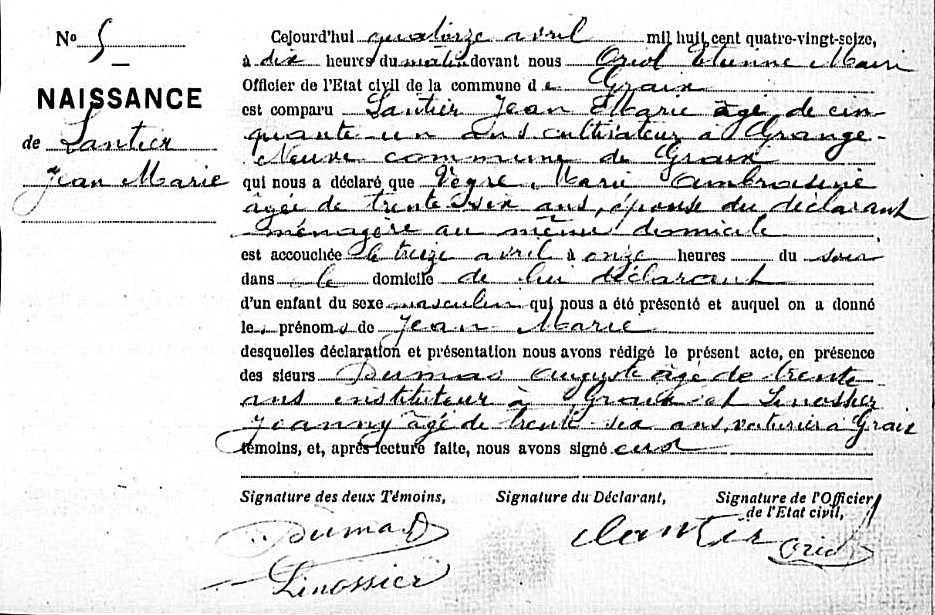 N° 5
NAISSANCE
de Lantier
Jean Marie
Cejourd'hui quatorze avril mil huit cent quatre-vingt-seize,
à dix heures du matin devant nous Oriol Etienne Maire
Officier de l'Etat civil de la commune de Graix
est comparu Lantier Jean Marie âgé de cin
quante-un ans cultivateur à Grange-
Neuve commune de Graix
qui nous a déclaré que Vègre Marie Ambroisine
âgée de trente-six ans, épouse du déclarant
ménagère au même domicile
est accouchée le treize avril à onze heures du soir
dans le domicile de lui déclarant
d'un enfant du sexe masculin qui nous a été présenté et auquel on a donné
les prénoms de Jean Marie
desquelles déclaration et présentation nous avons rédigé le présent acte, en présence
des sieurs Dumas Auguste âgé de trente
ans instituteur à Graix et Linossier
Jeanny âgé de trente-six ans, voiturier à Graix
témoins, et, après lecture faite, nous avons signé eux
Signature des deux Témoins,
Signature du Déclarant,
Signature de l'Officier
de l'Etat civil,
Dumas
Lantier
Oriol
Linossier